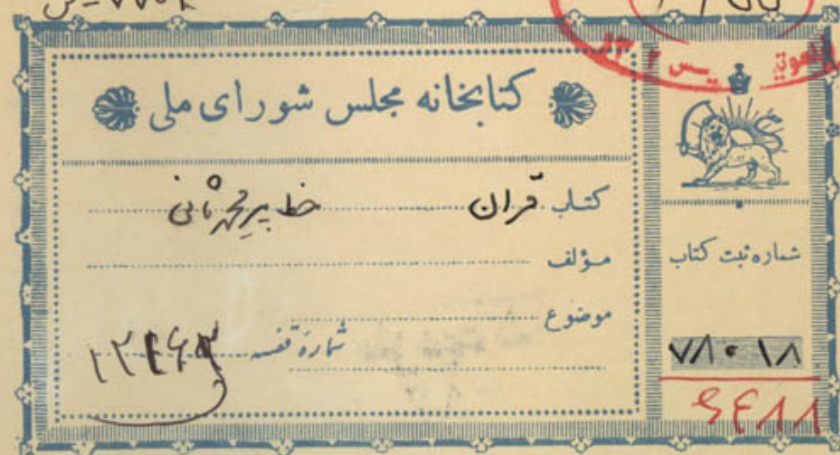 کتابخانه مجلس شورای ملی
کتاب قران خط پیر محمد ثانی
مؤلف
موضوع
شمارهٔ قفسه
شماره ثبت کتاب
۷۸۰۱۸
۶۴۸۸